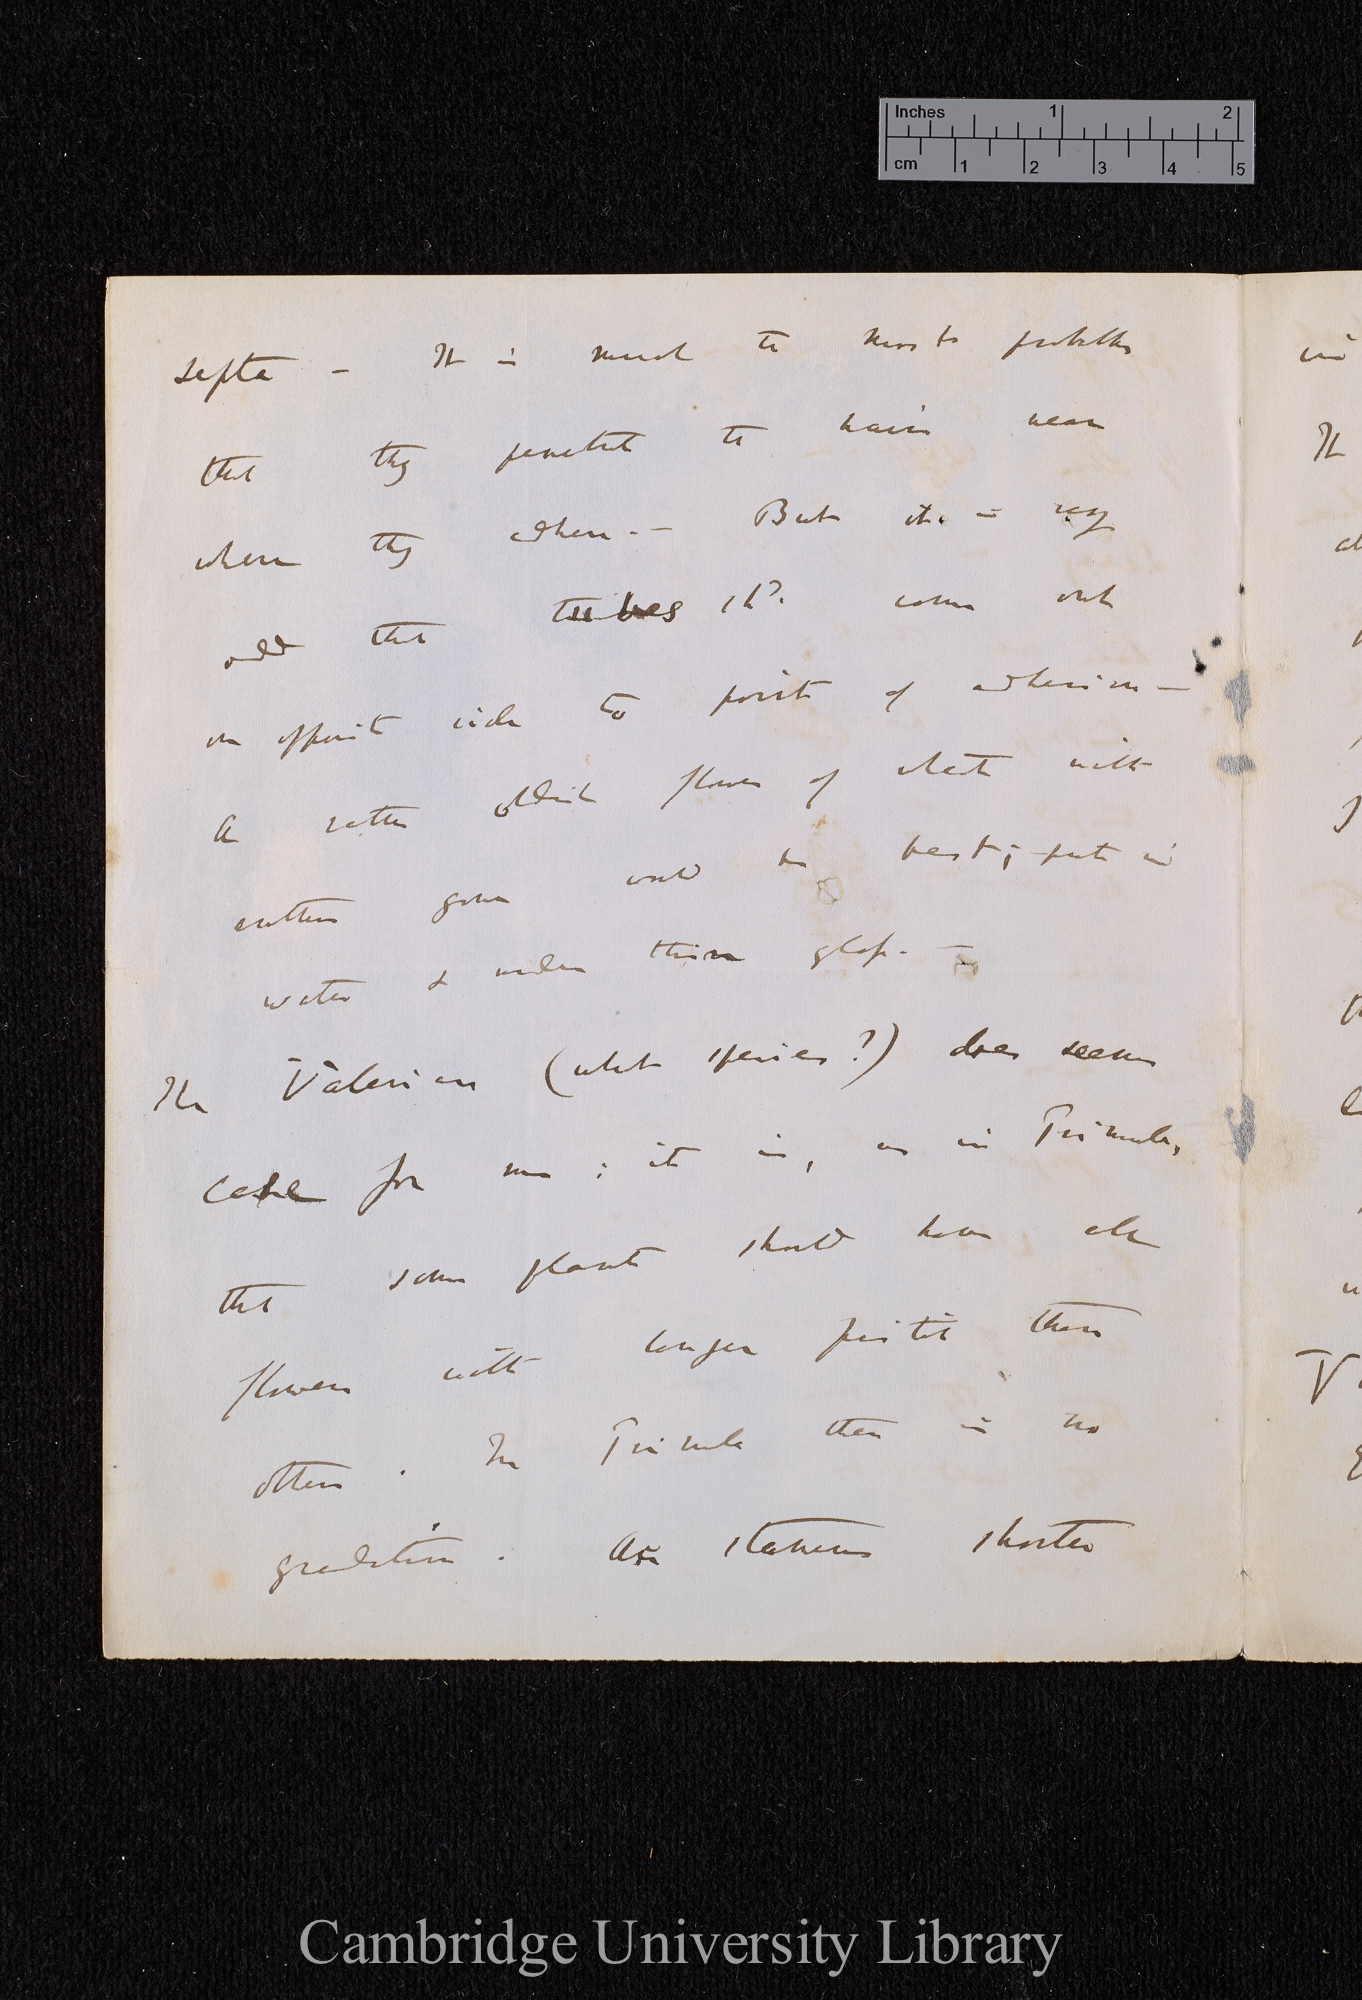 Inches 1 2
cm 1 2 3 4 5
septa — It is much the most probable
that they penetrate the hairs near
where they adhere. — But it is very
odd that tubes shd. come out
on opposite side to point of adhesion —
A rather oldish flower of wheat with
anthers gone would be best; put in
water & under thin glass. —
The Valerian (what species?) does seem
case for me; it is, as in Primula,
that some plants should have all
flowers with longer pistils than
others. In Primula there is no
gradation. Are stamens shorter
in
It
T
Cambridge University Library